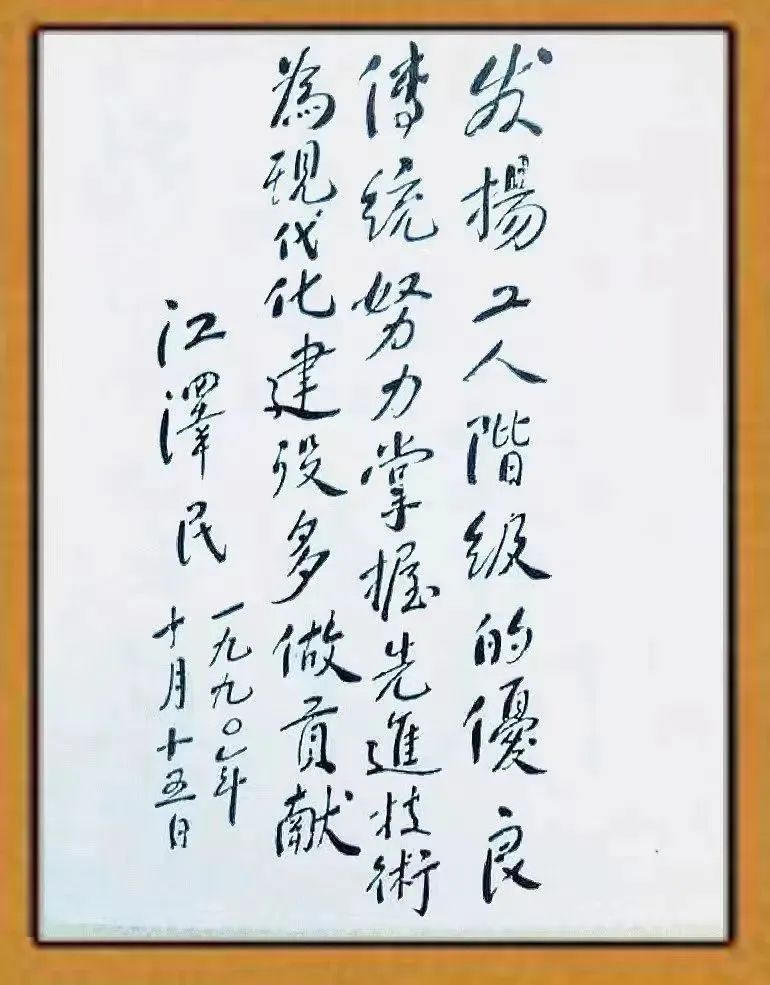 发揚工人階级的優良
傳統努力掌握先進技術
為現代化建设多做貢献
江澤民
一九九〇年
十月十五日